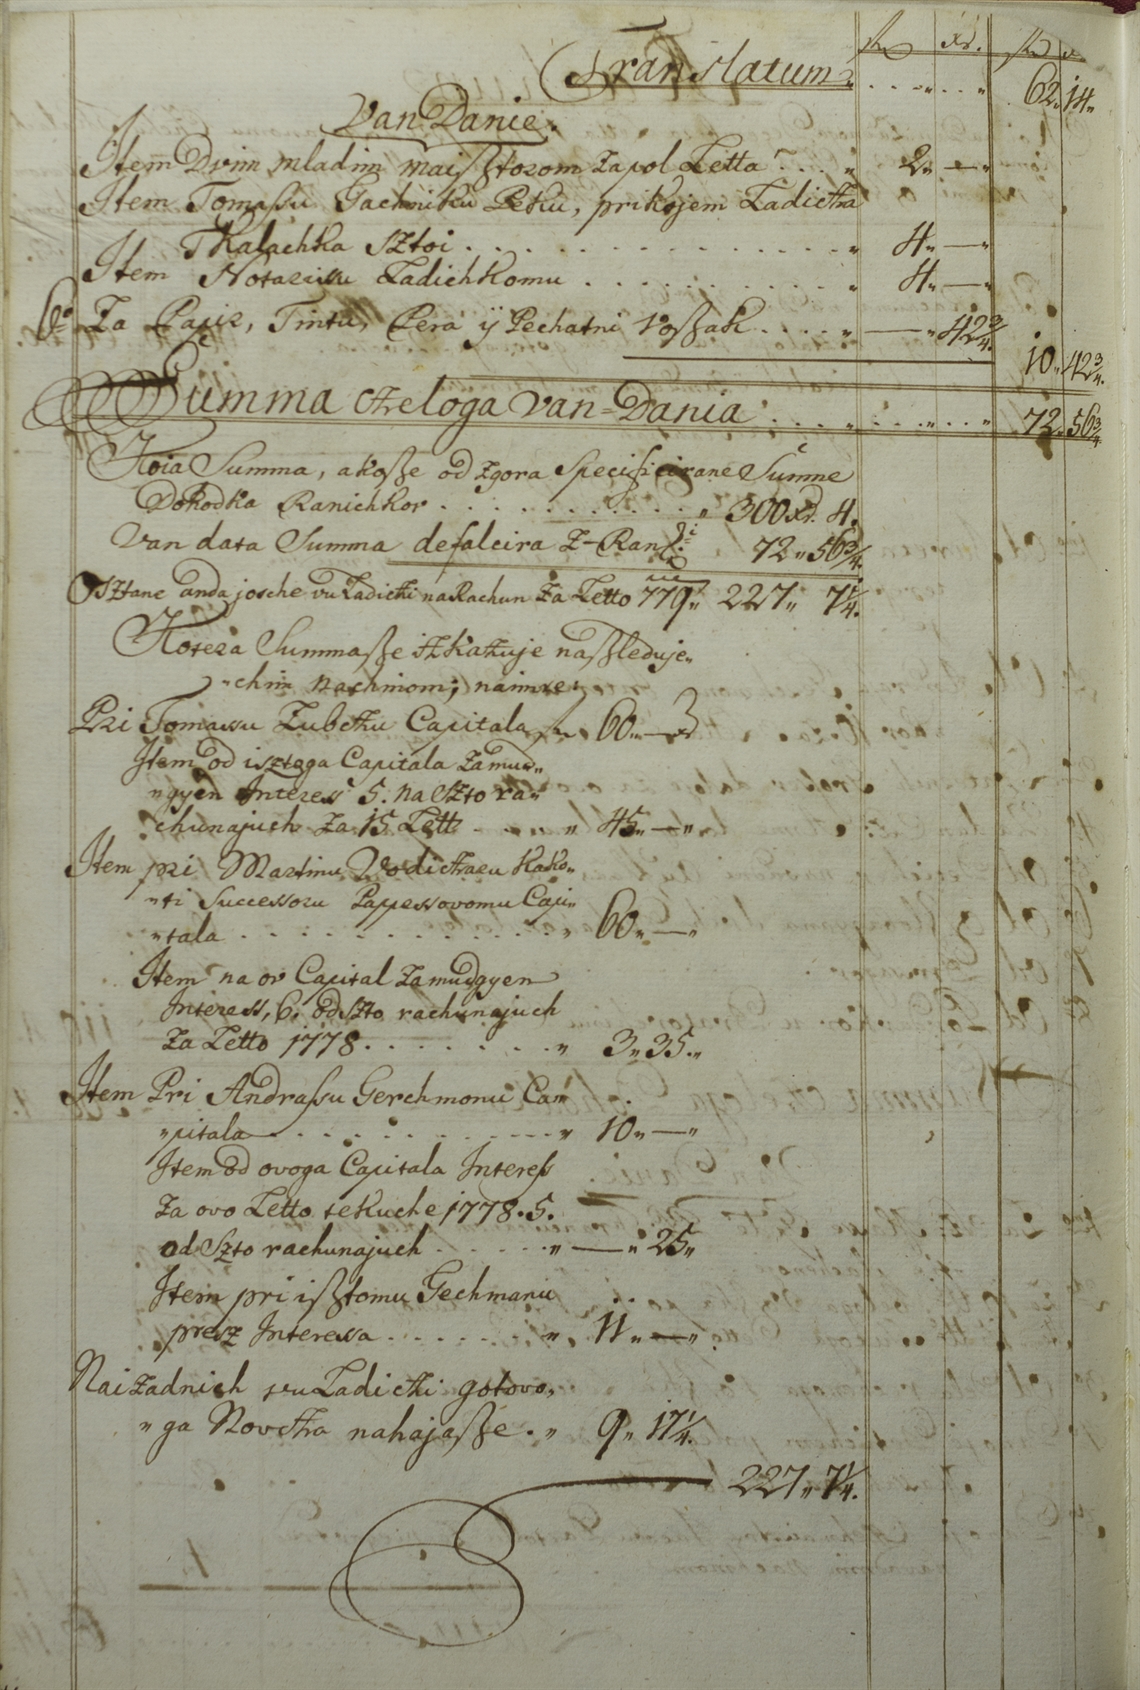 fl xr. fl x
Translatum . . . . . . 62. 14.
Van Danie.
Item Dvim mladim maißtorom za pol Letta . . . 2. —
Item Tomassu Jachniku Peku, prikojem Ladicza
Kalachka Sztoi . . . . . . . . 4. —
Item Notariusu Ladichkomu . . . . . . . . 4. —
6o Za Papir, Tintu, Pera ÿ Pechatni Voßak . . . . — 42 3/4.
10. 42 3/4.
Summa Czeloga Van-Dania . . . . . . . 72. 56 3/4
Koia Summa, akoße od zgora Specificirane Summe
Dohodka Ranichkor . . . . . . . . . . 300 xr. 4.
Van data Summa defalcira Z-Ranf. 72. 56 3/4.
Osztane anda josche vu Ladicki na Rachun Za Letto 779. 227. 7 1/4.
Kotera Summaße izkazuje naßleduje„
„chim nachinom; naimre:
Pri Tomassu Zubcku Capitala fl 60. —
Item od isztoga Capitala Zamu„
„gyen Interess 5. na Szto ra„
chunajuch Za 15 Lett . . . . 45. —
Item pri Martinu Vodicharu Kako„
„ti Successoru Pappessovomu Capi„
„tala . . . . . . . . . . . . 60. —
Item na ov Capital Zamudgyen
Interess, 6. od Szto rachunajuch
Za Letto 1778 . . . . . . . 3. 35.
Item Pri Andrassu Gerchmonu Ca„
„pitala . . . . . . . . . . . 10. —
Item od ovoga Capitala Interess
Za ovo Letto tekuche 1778. 5.
od Szto rachunajuch . . . . . — 25„
Item pri ißtomu Gechmanu
presz Interessa . . . . . . . 11. —
Nai Zadnich vu Ladicki gotovo„
„ga Novcza nahajaße . 9. 17 1/4.
227. 7 1/4.